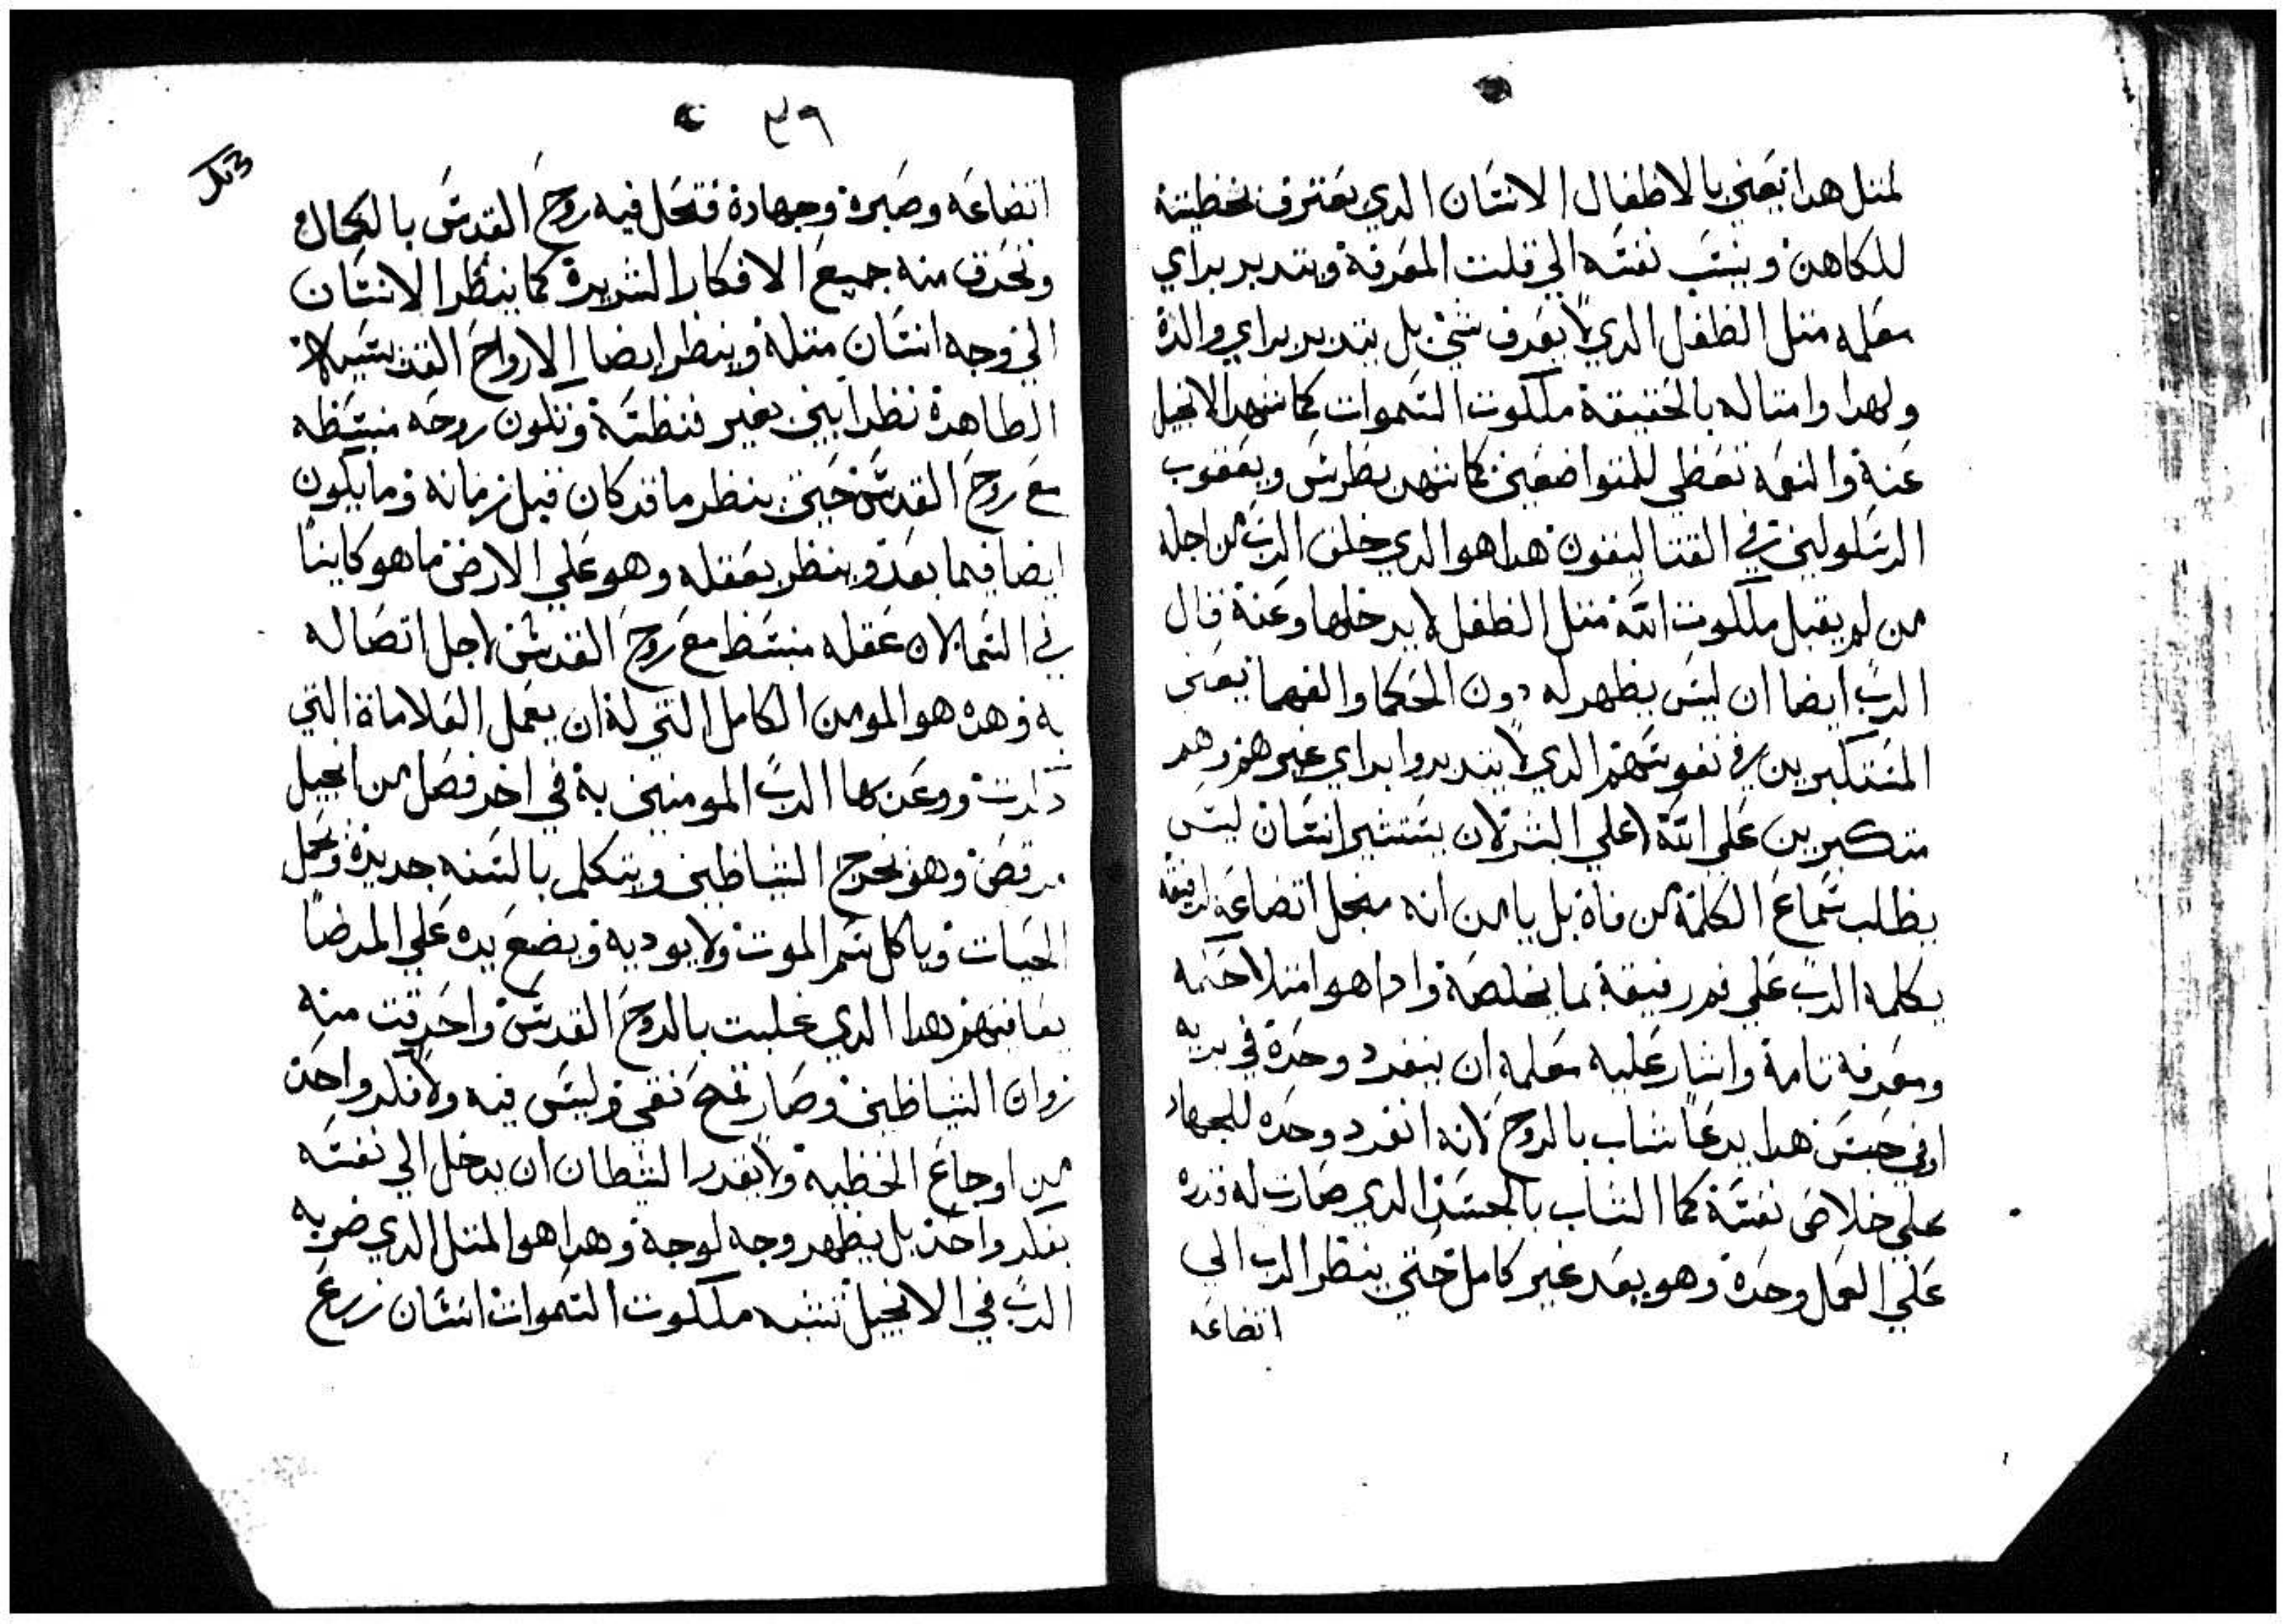 لمثل هدا يعني بالاطفال الانسان الدي يعترف بخطيته
للكاهن وينسب نفسه الي قلت المعرفة ويتدبر براي
معلمه متل الطفل الدي لا يعرف شي بل يتدبر براي والدة
ولهدا وامتاله بالحقيقة ملكوت السموات كما شهد الانجيل
عنه والنعمه تعطي للمتواضعين كما شهد بطرس ويعقوب
الرسلولين في القتاليقون هدا هو الدي خلق الرب من اجله
من لم يقبل ملكوت الله متل الطفل لا يدخلها وعنة قال
الرب ايضا ان ليس يظهر له دون الحكما والفهما يعني
المتكبرين في نفوسهم الدي لا يتدبروا براي غيرهم وهم
متكبرين علي الله اعلي الشر لان يستشير انسان ليس
يطلب سماع الكلمة من فاة بل يامن انه منجل اتضاعه لرفيقه
يكلمه الرب علي فم رفيقة بما يخلصة وادا هو امتلا حكمه
ومعرفه تامة واشار عليه معلمه ان ينفرد وحدة في بريه
او في حبس هدا يدعا شاب بالروح لانه انفرد وحده للجهاد
علي خلاص نفسة كما الشاب بالجسد الدي صارت له قدره
علي العمل وحدة وهو بعد غير كامل حتي ينظر الرب الي
اتضاعه
٣٩
اتضاعه وصبره وجهادة فتحل فيه روح القدس بالكمال
وتحرق منه جميع الافكار الشريرة كما ينظر الانسان
الي وجه انسان متلة وينظر ايضا الارواح القديسيه
الطاهرة نظرا بين بغير فنطسة وتكون روحه منبسطه
مع روح القدس حتي ينظر ما قد كان قبل زمانه وما يكون
ايضا فيما بعد وينظر بعقله وهو علي الارض ما هو كاينا
في السما لان عقله منبسط مع روح القدس لاجل اتصاله
به وهده هو المومن الكامل التي لة ان يعمل العلاماة التي
دكرت ووعد بها الرب المومنين به في اخر فصل من انجيل
مرقص وهو يخرج الشياطين ويتكلم بالسنه جديدة ويحمل
الحيات وياكل سم الموت ولا يوديه ويضع يده علي المرضا
يعافيهم هدا الدي غلبت بالروح القدس واحرقت منه
زوان الشياطين وصار قمح نقي وليس فيه ولا فكر واحد
من اوجاع الخطيه ولا يقدر الشيطان ان يدخل الي نفسه
بفكر واحد بل يظهر وجه لوجة وهدا هو المتل الدي ضربه
الرب في الانجيل تشبه ملكوت السموات انسان زرع